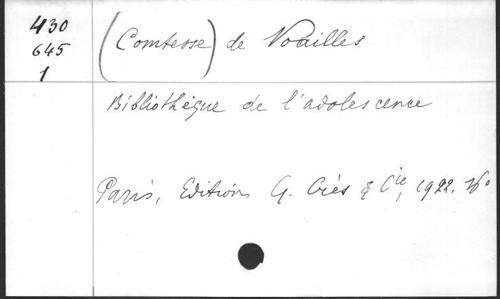 430
645
1
(Comtesse) de Noailles
Bibliothèque de l'adolescence
Paris, Edition G. Crès & Cie, 1922. 16°